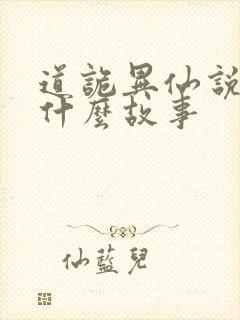 道詭異仙說
什麼故事
仙藍兒